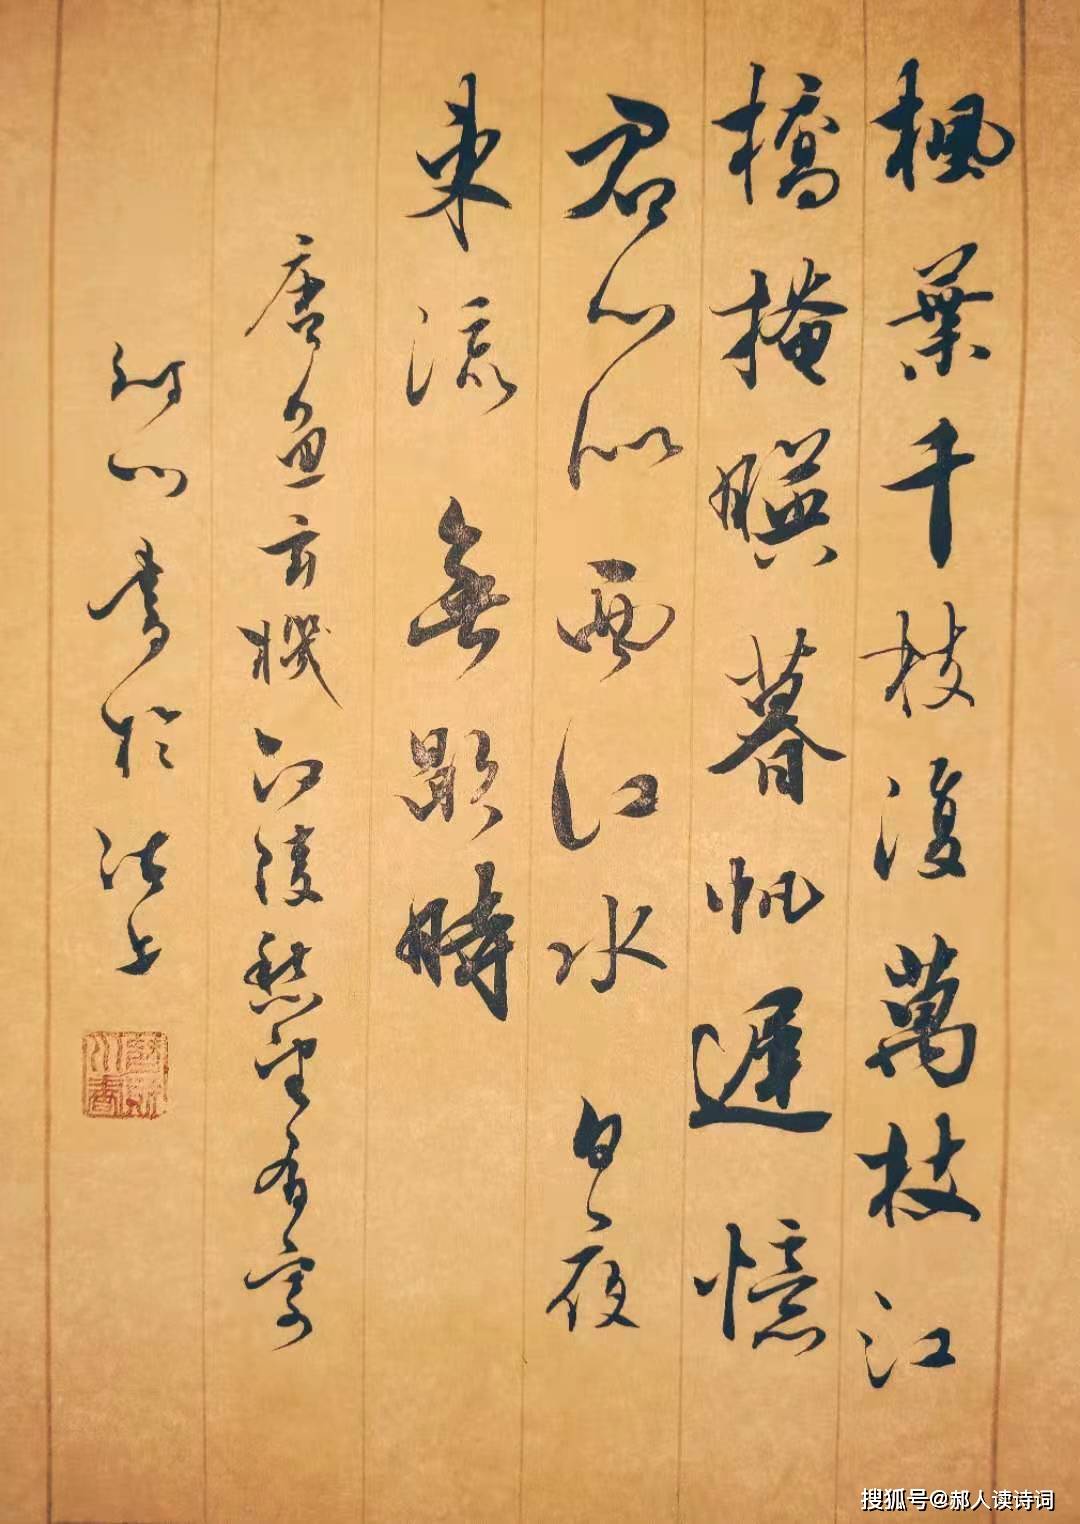 楓葉千枝復萬枝江
橋掩暎暮帆遲憶
君心似西江水日夜
東流無歇時
唐魚玄機江陵愁望有寄
書於沽上
搜狐号@郝人读诗词